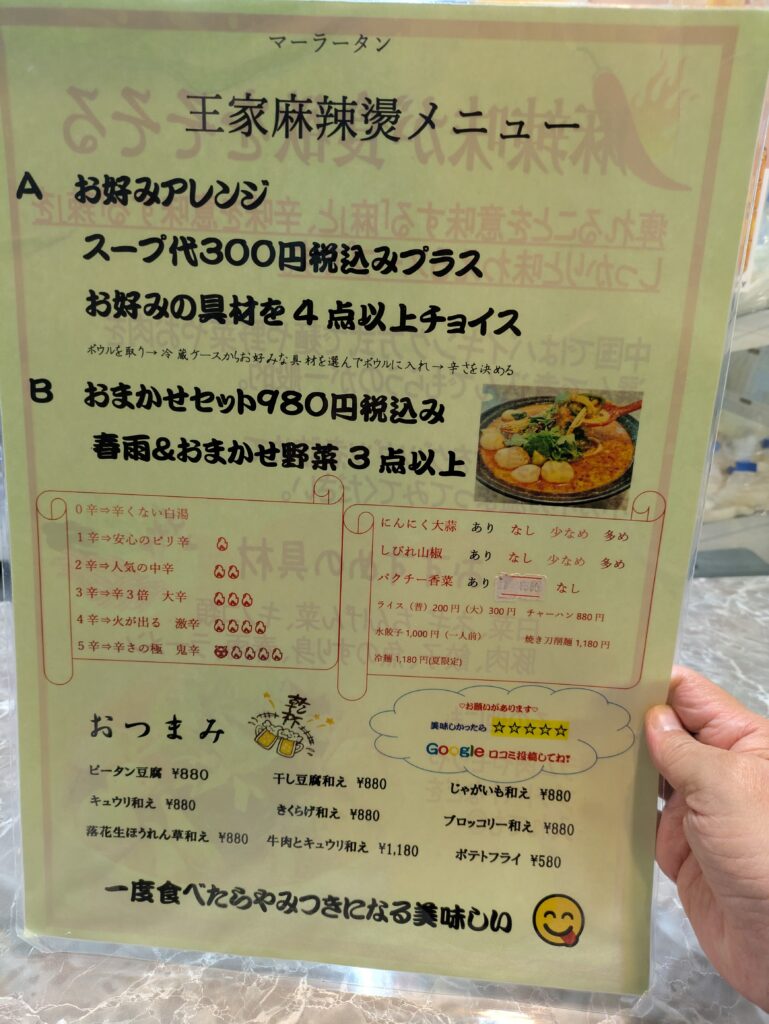 マーラータン
王家麻辣燙メニュー
A お好みアレンジ
スープ代300円税込みプラス
お好みの具材を4点以上チョイス
ボウルを取り→冷蔵ケースからお好みな具材を選んでボウルに入れ→辛さを決める
B おまかせセット980円税込み
春雨&おまかせ野菜3点以上
0辛⇒辛くない白湯
1辛⇒安心のピリ辛
2辛⇒人気の中辛
3辛⇒辛3倍 大辛
4辛⇒火が出る 激辛
5辛⇒辛さの極 鬼辛
にんにく大蒜 あり なし 少なめ 多め
しびれ山椒 あり なし 少なめ 多め
パクチー香菜 あり なし
ライス（普）200円（大）300円 チャーハン880円
水餃子1,000円（一人前） 焼き刀削麺1,180円
冷麺1,180円(夏限定)
おつまみ
乾杯
♡お願いがあります♡
美味しかったら ☆☆☆☆☆
Google 口コミ投稿してね!
ピータン豆腐 ¥880
干し豆腐和え ¥880
じゃがいも和え ¥880
キュウリ和え ¥880
きくらげ和え ¥880
ブロッコリー和え ¥880
落花生ほうれん草和え ¥880
牛肉とキュウリ和え ¥1,180
ポテトフライ ¥580
一度食べたらやみつきになる美味しい